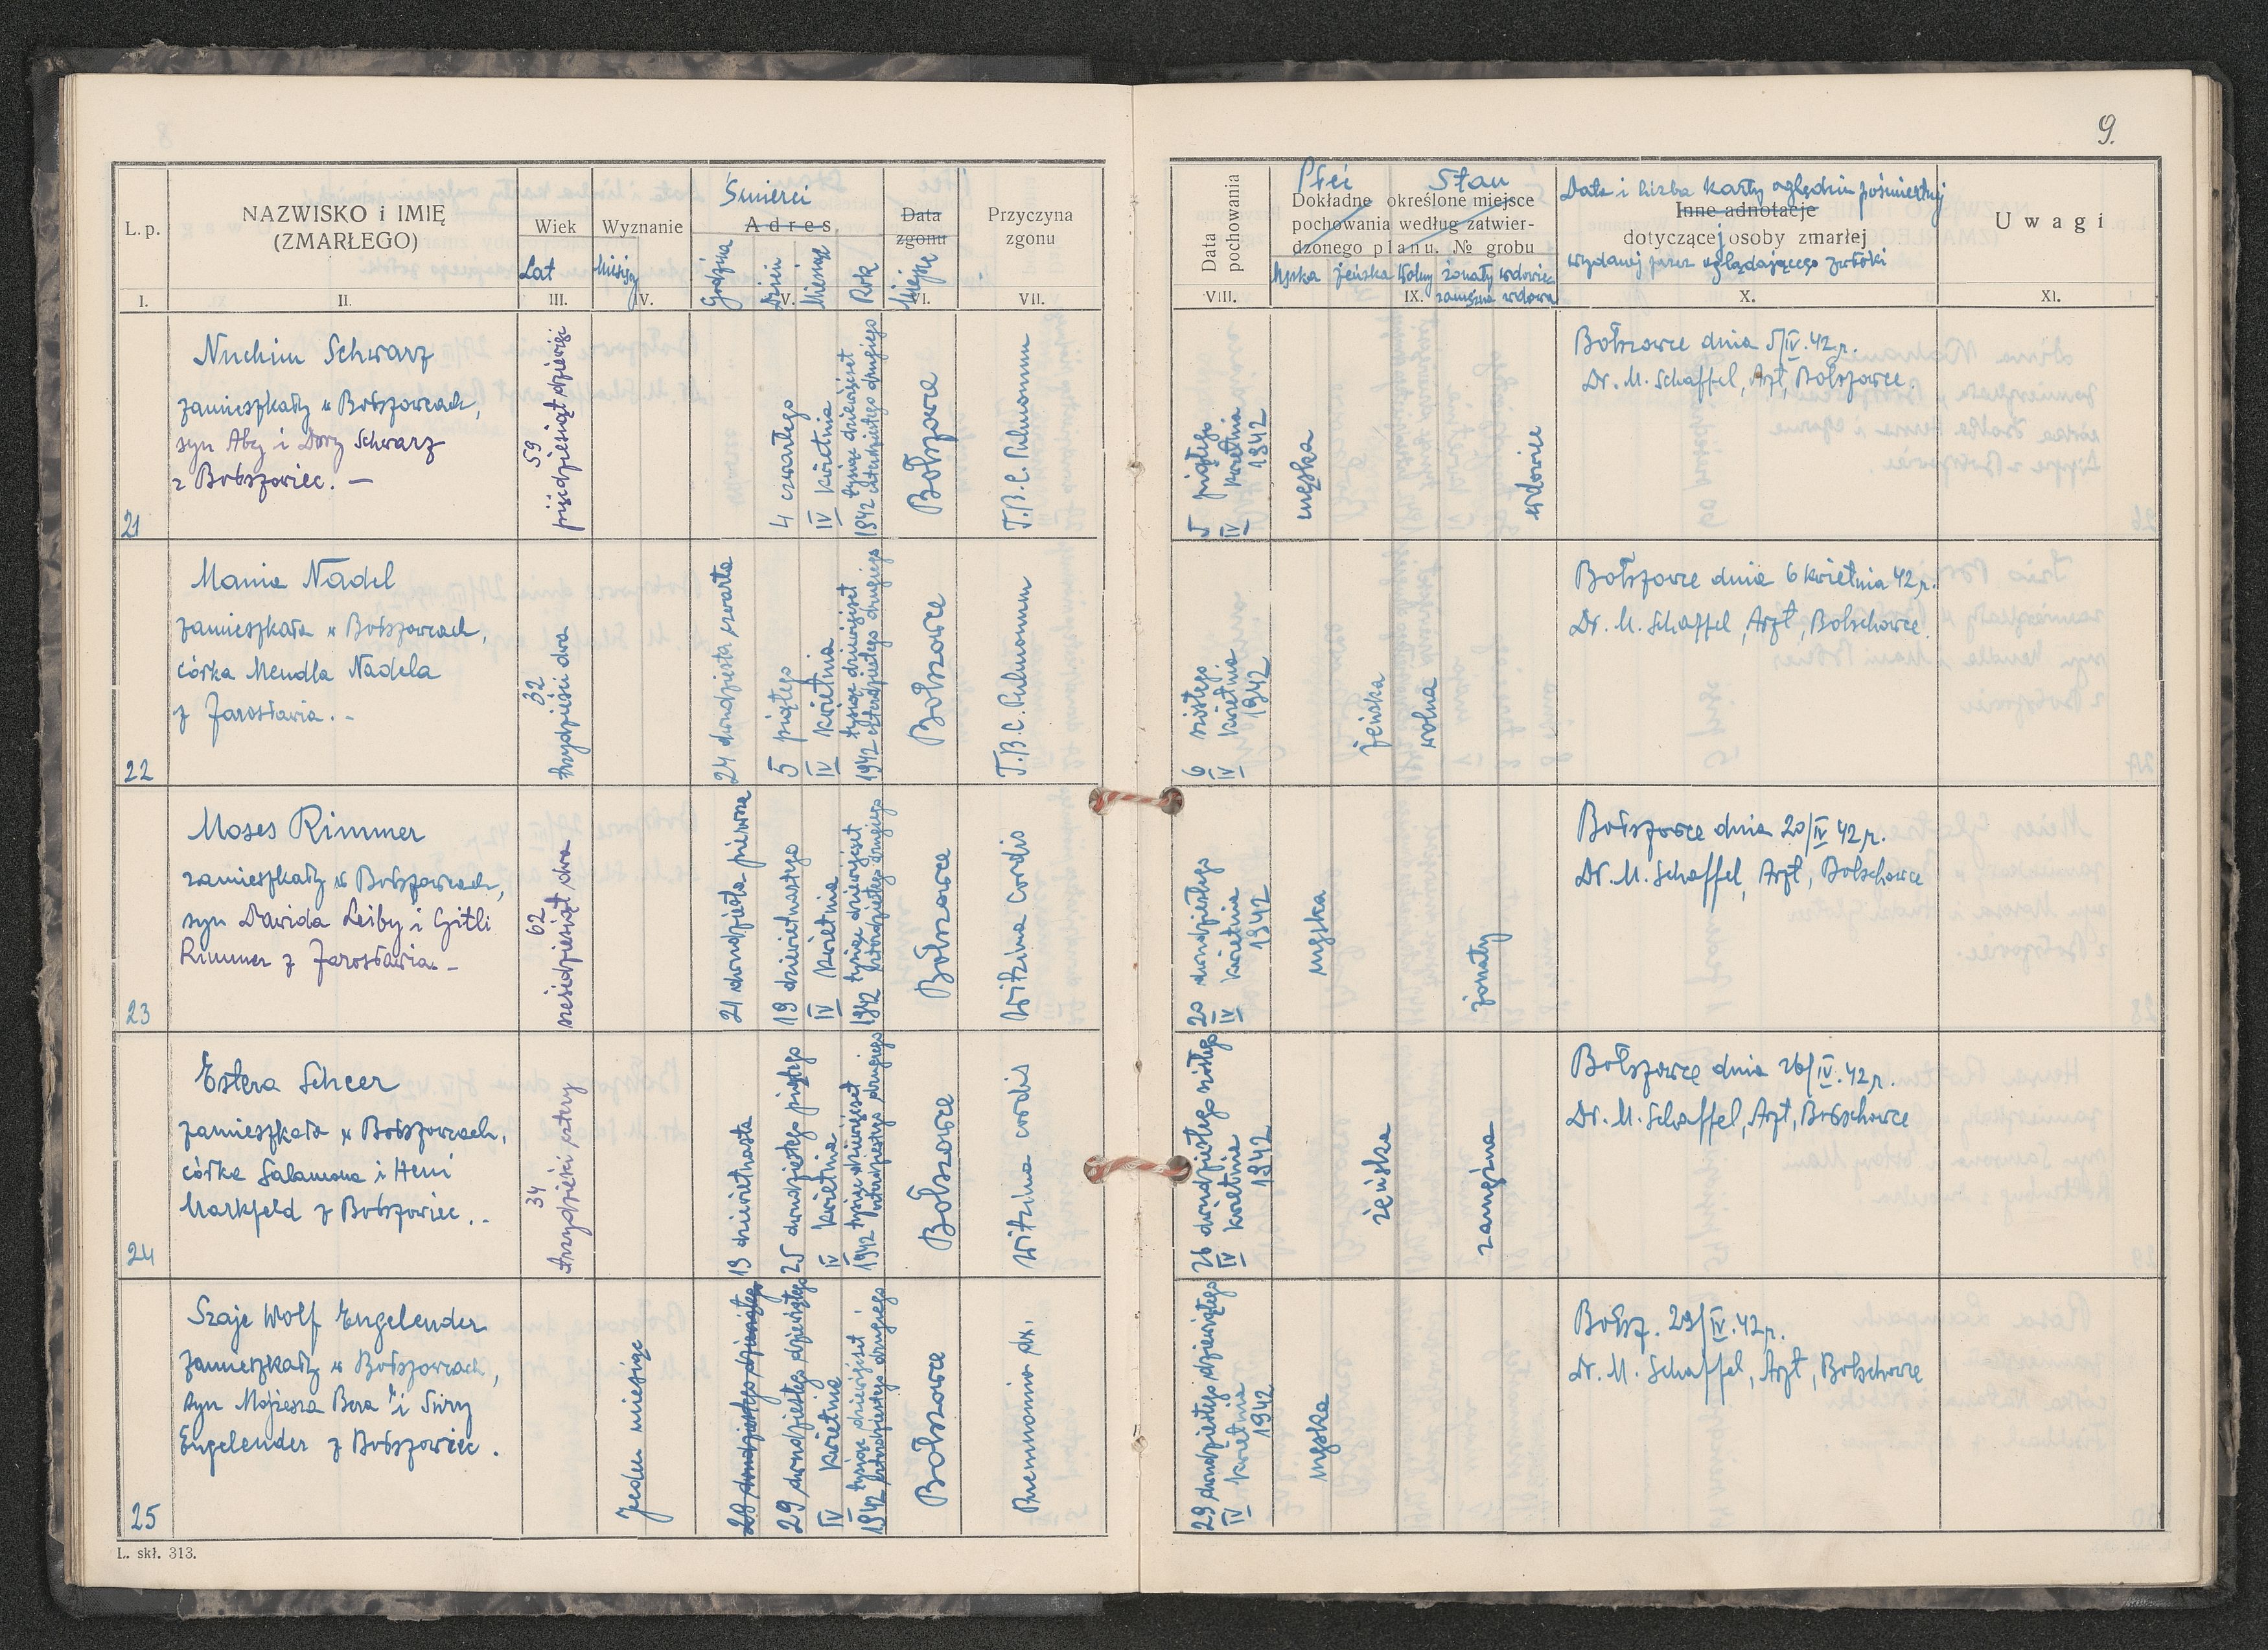 9.
L. p.
NAZWISKO i IMIĘ
(ZMARŁEGO)
Wiek
Lat
Wyznanie
Miesięcy
Śmierci
Adres
Godzina
Dzień
Miesiąc
Rok
Data
zgonu
Miejsce
Przyczyna
zgonu
I.
II.
III.
IV.
V.
VI.
VII.
Data
pochowania
Płeć Stan
Dokładne określone miejsce
pochowania według zatwier-
dzonego planu. № grobu
Męska żeńska Wolny żonaty wdowiec
zamężna wdowa
Data i liczba karty oględzin pośmiertnej
Inne adnotacje
dotyczącej osoby zmarłej
wydanej przez oglądającego zwłoki
Uwagi
VIII.
IX.
X.
XI.
21
Nuchim Schwarz
zamieszkały w Bołszowcach,
syn Aby i Dory Schwarz
z Bołszowiec. —
59
pięćdziesiąt dziewięć
4 czwartego
IV kwietnia
tysiąc dziewięćset
1942 czterdziestego drugiego
Bołszowce
T.B.C. Pulmonum
5 piątego
IV kwietnia
1942
męska
wdowiec
Bołszowce dnia 5/IV.42 r.
Dr. M. Schaffel, Arzt, Bołszowce.
22
Mania Nadel
zamieszkała w Bołszowcach,
córka Mendla Nadela
z Jarosławia. -
32
trzydzieści dwa
24 dwudziesta czwarta
5 piątego
IV kwietnia
tysiąc dziewięćset
1942 czterdziestego drugiego
Bołszowce
T.B.C. Pulmonum
6 szóstego
IV kwietnia
1942
żeńska
wolna
Bołszowce dnia 6 kwietnia 42 r.
Dr. M. Schaffel, Arzt, Bolschowce.
23
Moses Rimmer
zamieszkały w Bołszowcach,
syn Dawida Leiby i Gitli
Rimmer z Jarosławia. -
62
sześćdziesiąt dwa
21 dwudziesta pierwsza
19 dziewiętnastego
IV kwietnia
tysiąc dziewięćset
1942 czterdziestego drugiego
Bołszowce
Witzina cordis
20 dwudziestego
IV kwietnia
1942
męska
żonaty
Bołszowce dnia 20/IV 42 r.
Dr. M. Schaffel, Arzt, Bolschowce
24
Estera Scheer
zamieszkała w Bołszowcach,
córka Salamona i Heni
Markfeld z Bołszowiec. -
34
trzydzieści cztery
19 dziewiętnasta
25 dwudziestego piątego
IV kwietnia
tysiąc dziewięćset
1942 czterdziestego drugiego
Bołszowce
Witzina cordis
26 dwudziestego szóstego
IV kwietnia
1942
żeńska
zamężna
Bołszowce dnia 26/IV.42 r.
Dr. M. Schaffel, Arzt, Bołschowce
25
Szaje Wolf Engelender
zamieszkały w Bołszowcach,
syn Mojżesza Bera i Sury
Engelender z Bołszowiec.
Jeden miesiąc
29 dwudziestego dziewiątego
IV kwietnia
tysiąc dziewięćset
1942 czterdziestego drugiego
Bołszowce
Pneumonia dx.
29 dwudziestego dziewiątego
IV kwietnia
1942
męska
Bołsz. 29/IV.42 r.
Dr. M. Schaffel, Arzt, Bolschowce
L. skł. 313.